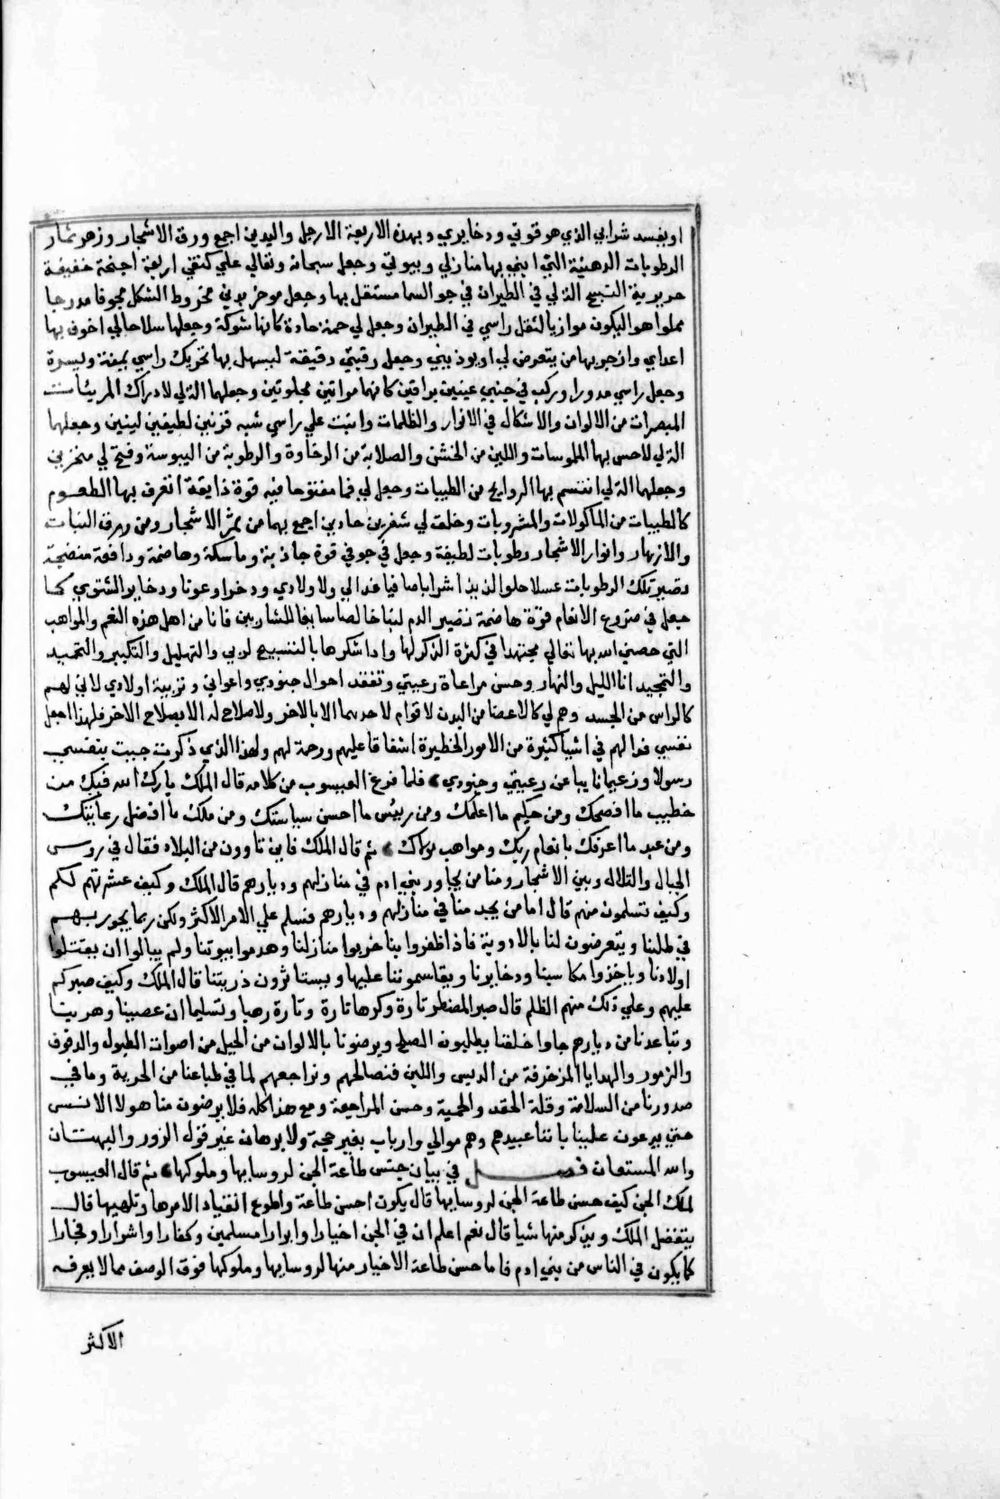 او يفسد شرابي الذي هو قوتي ودخايري وبهذه الاربعة الارجل واليدين اجمع ورق الاشجار وزهر ثمار
الرطوبات الدهنية التي ابني بها منازلي وبيوتي وجعل سبحانه وتعالي علي كتفي اربعة اجنحة خفيفة
حريرية النسيج الة لي في الطيران في جو السما مستقل بها وجعل موخر بدني مخروط الشكل مجوفا مدرجا
مملوا هوا ليكون موازيا لثقل راسي في الطيران وجعل لي حمة حادة كانها شوكة وجعلها سلاحا لي اخوف بها
اعداي وازجر بها من يتعرض لي او يوذيني وجعل رقبتي دقيقة ليسهل بها تحريك راسي يمنة ويسرة
وجعل راسي مدورا وركب في جنبي عينين براقين كانهما مراتين مجلوتين وجعلهما الة لي لادراك المرئيات
المبصرات من الالوان والاشكال في الانوار والظلمات وانبت علي راسي شبه قرنين لطيفين لينين وجعلهما
الة لي لاحس بها الملموسات واللين من الخشن والصلابة من الرخاوة والرطوبة من اليبوسة وفتح لي منخرين
وجعلهما الة لي انتسم بها الروايح من الطيبات وجعل لي فما مفتوحا فيه قوة ذايقة اتعرف بها الطعوم
كالطيبات من الماكولات والمشروبات وخلق لي شفرين حادين اجمع بهما من ثمر الاشجار ومن ورق النبات
والازهار وانوار الاشجار رطوبات لطيفة وجعل في جوفي قوة جاذبة وماسكة وهاضمة ودافعة منضجة
تصير تلك الرطوبات عسلا حلوا لذيذا شرابا صافيا غدا لي ولاولادي ودخرا وعونا ودخاير الشتوي كما
جعل في ضروع الانعام قوة هاضمة تصير الدم لبنا خالصا سايغا للشاربين فانا من اهل هذه النعم والمواهب
التي خصني الله بها تعالي مجتهدا في كثرة الذكر لها واداشكرها بالتسبيح لربي والتهليل والتكبير والتحميد
والتمجيد انا الليل والنهار وحسن مراعاة رعيتي وتفقد احوال جنودي واعواني وتربية اولادي لاني لهم
كالراس من الجسد وهم لي كالاعضا من البدن لا قوام لاحدهما الا بالاخر ولا صلاح له الا بصلاح الاخر فلهذا اجعل
نفسي فدا لهم في اشيا كثيرة من الامور الخطيرة اشفاقا عليهم ورحمة لهم ولهذا الذي ذكرت جيت بنفسي
رسولا وزعيما نايبا عن رعيتي وجنودي فلما فرغ اليعسوب من كلامه قال الملك بارك الله فيك من
خطيب ما افصحك ومن حكيم ما اعلمك ومن رييس ما احسن سياستك ومن ملك ما افضل رعايتك
ومن عبد ما اعرفك بانعام ربك ومواهب مولاك ثم قال الملك فاين تاوون من البلاد فقال في روس
الجبال والتلال وبين الاشجار ومنا من يجاور بني ادم في منازلهم وديارهم قال الملك وكيف عشرتهم لكم
وكيف تسلمون منهم قال اما من يجد منا في منازلهم وديارهم فنسلم علي الامر الاكثر ولكن ربما يجور بهم
في طلبنا ويتعرضون لنا بالادوية فاذا ظفروا بنا خربوا منازلنا وهدموا بيوتنا ولم يبالوا ان يقتلوا
اولادنا وياخذوا مكاسبنا ودخايرنا ويقاسموننا عليها ويستاثرون ذريتنا قال الملك وكيف صبركم
عليهم وعلي ذلك منهم الظلم قال صبر المضطر تارة وكرها تارة وتارة رهبا وتسليما ان عصينا وهربنا
وتباعدنا من ديارهم جاوا خلفنا يطلبون الصلح ويرضونا بالالوان من الحيل من اصوات الطبول والدفوف
والزمور والهدايا المزخرفة من الدبس واللبن فنصالحهم ونراجعهم لما في طباعنا من الحرية وما في
صدورنا من السلامة وقلة الحقد والحمية وحسن المراجعة ومع هذا كله فلا يرضون منا هولا الانس
حتي يدعون علينا باننا عبيدهم وهم موالي وارباب بغير حجة ولا برهان غير قول الزور والبهتان
والله المستعان فصل في بيان حسن طاعة الجن لروسايها وملوكها ثم قال اليعسوب
لملك الجن كيف حسن طاعة الجن لروسايها قال يكون احسن طاعة واطوع انقياد الامرها ونهيها قال
يتفضل الملك ويذكر منها شيا قال نعم اعلم ان في الجن اخيارا وابرارا مسلمين وكفارا واشرارا وفجارا
كما يكون في الناس من بني ادم فاما حسن طاعة الاخيار منها لروسايها وملوكها فوق الوصف مما لا يعرفه
الاكثر